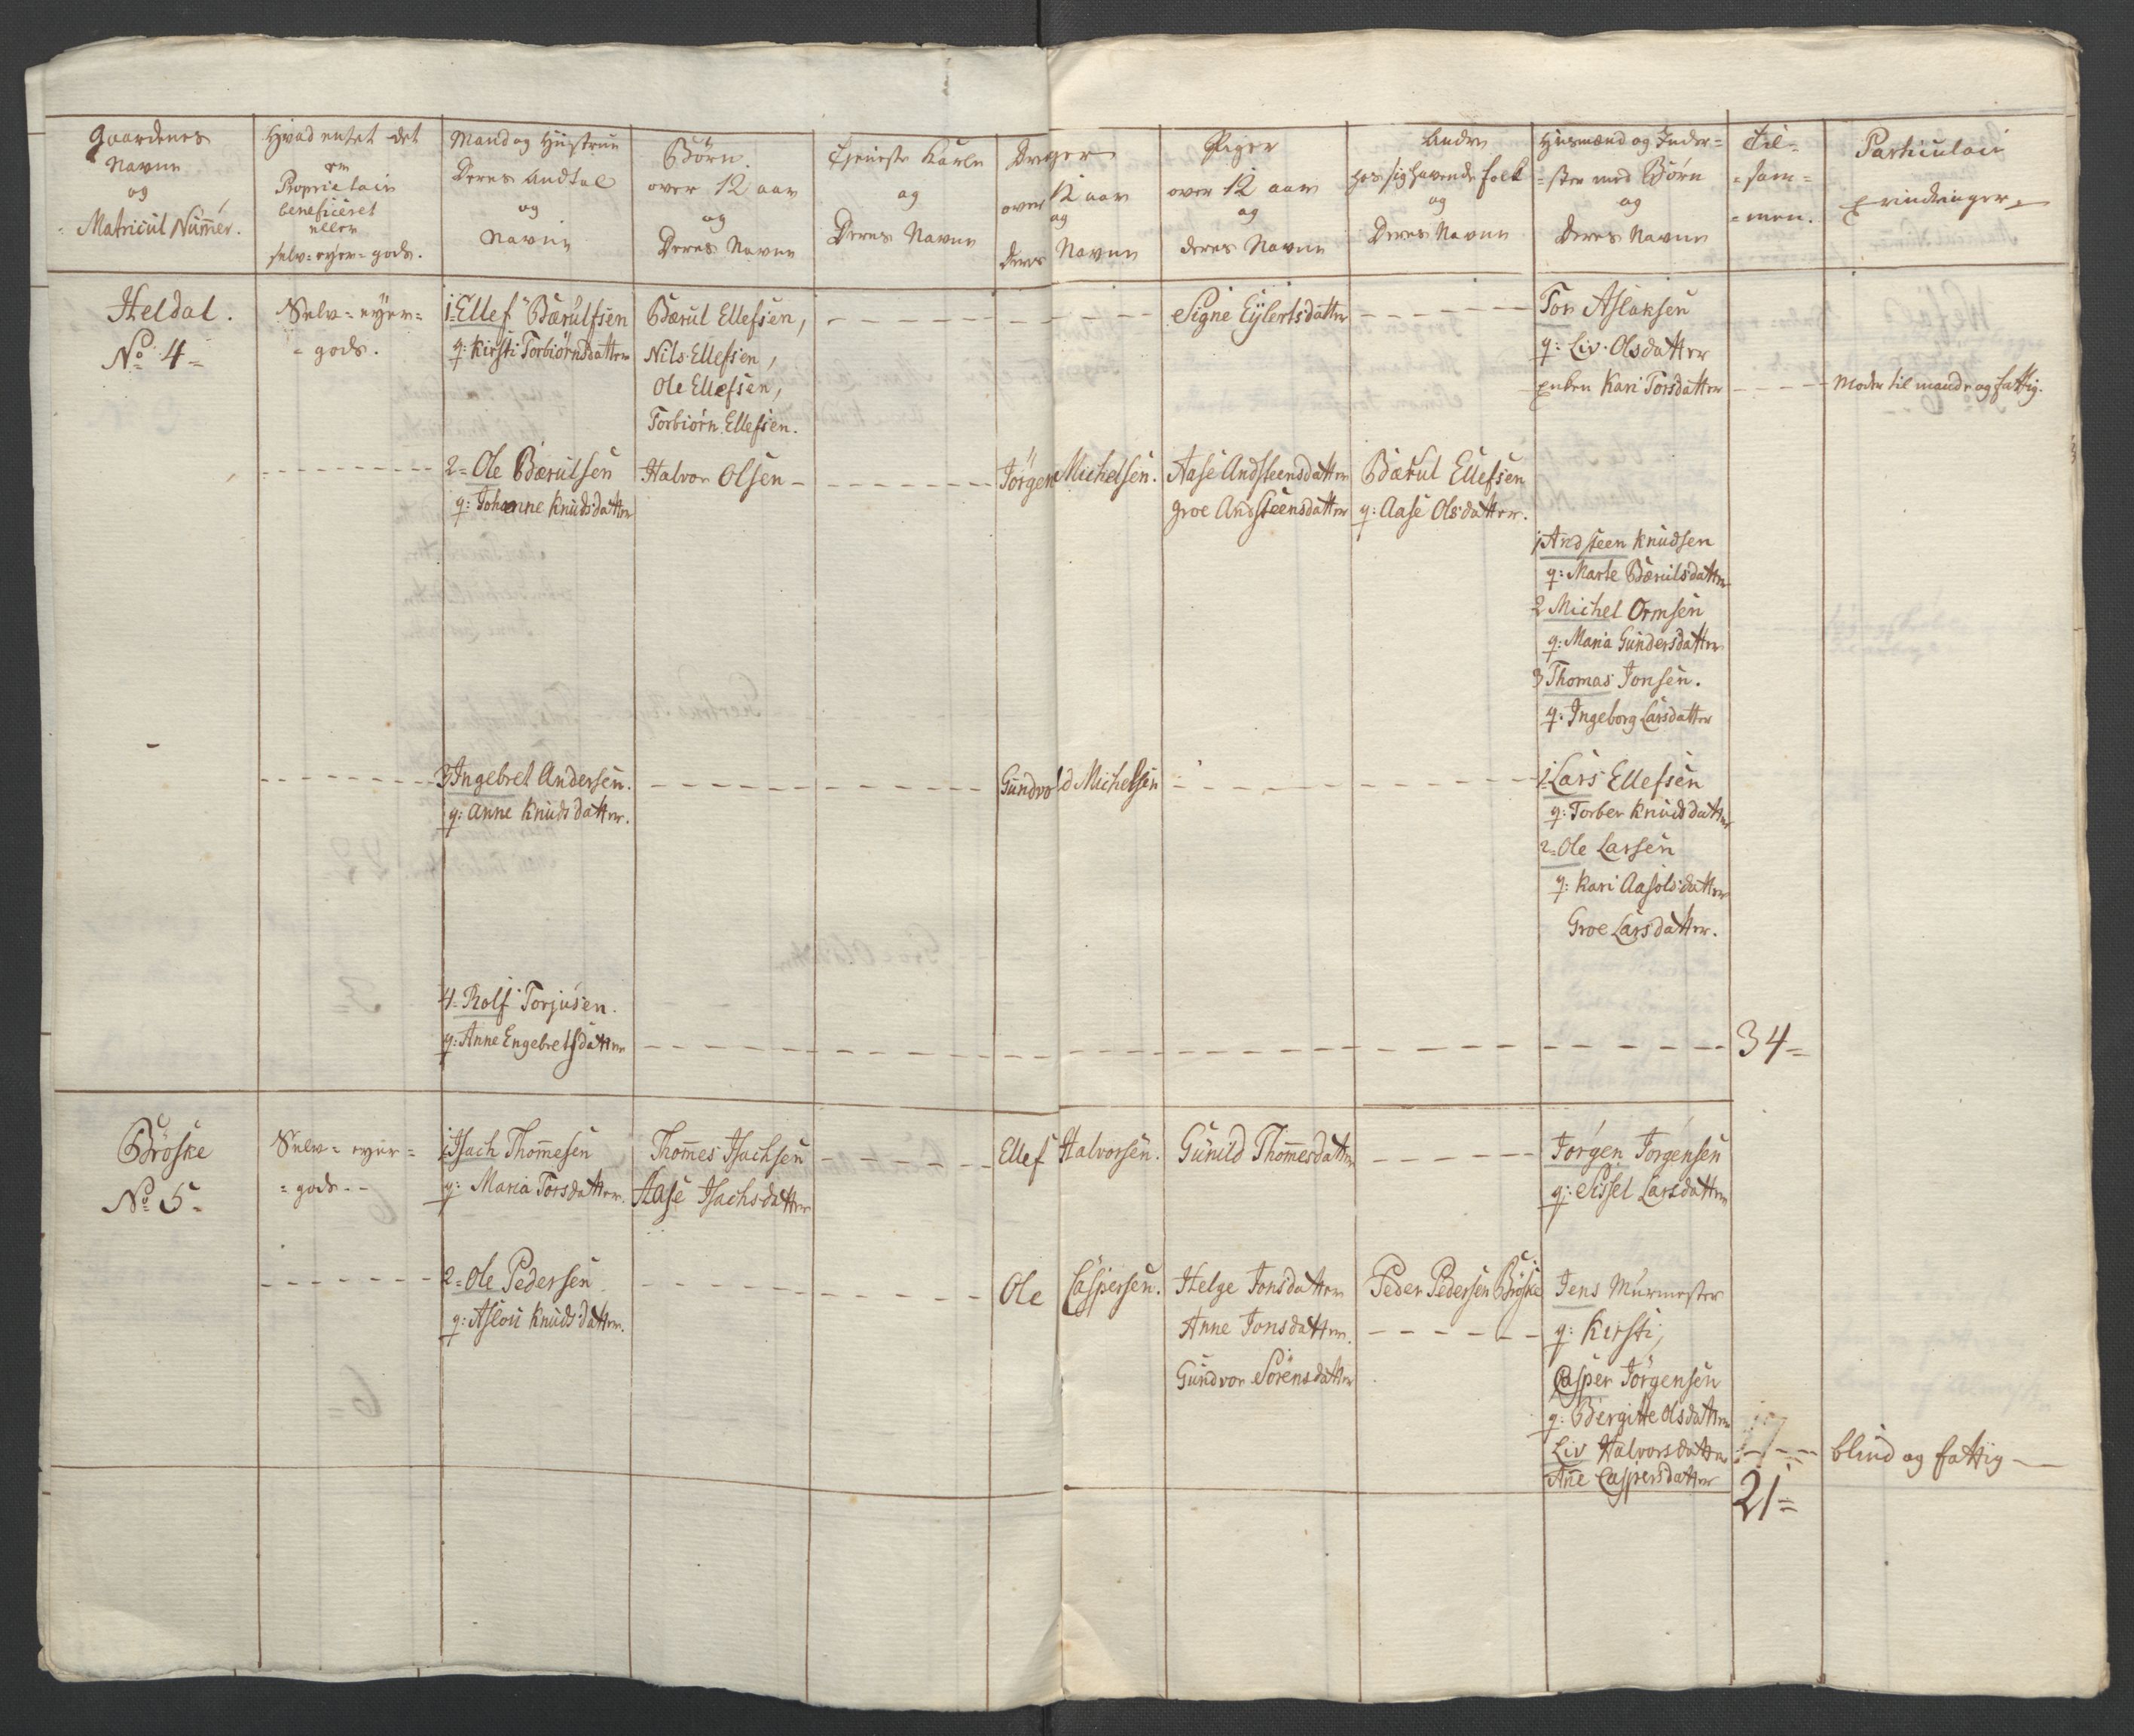 Gaardenes
Navne
og
Matricul Nummer.
Hvad entet det
er
Proprietair
beneficeret
eller
selv-eyer-gods.
Mand og Hustrue
Deres Andtal
og
Navne
Børn
over 12 aar
og
Deres Navne
Tjeneste Karle
og
Deres Navne
Drenge
over 12 aar
og
Deres Navne
Piger
over 12 aar
og
deres Navne
Andre
hos sig havende folk
og
Deres Navne
Husmænd og Inder-
-ster med Børn
og
Deres Navne
Til-
-sam-
-men.
Particulair
Erindringer
Heldal.
No 4
Selv-eyer-
-gods.
1 Ellef Bærulfsen
q: Kirsti Torbiørnsdatter
Bærul Ellefsen,
Nils Ellefsen,
Ole Ellefsen,
Torbiørn Ellefsen.
Signe Eylertsdatter
Tor Aslaksen
q: Liv Olsdatter
Enken Kari Torsdatter
Moder til mande og fattig.
2 Ole Bærulsen
q: Johanne Knudsdatter
Halvor Olsen
Jörgen Michelsen.
Aase Andsteensdatter
Groe Andsteensdatter
Bærul Ellefsen
q: Aase Olsdatter.
1 Andsteen Knudsen
q: Marte Bærulsdatter
2 Michel Ormsen
q: Maria Gundersdatter
3 Thomas Jonsen.
q: Ingeborg Larsdatter
3 Ingebret Andersen.
q: Anne Knudsdatter.
Gundvold Michelsen
1 Lars Ellefsen
q: Torber Knudsdatter
2 Ole Larsen
q: Kari Aasolsdatter
Groe Larsdatter.
4 Rolf Torjusen.
q: Anne Engebretsdatter
34
Bröske
No 5.
Selv-eyer-
-gods
1 Isach Thomesen
q: Maria Torsdatter.
Thomes Isachsen
Aase Isachsdatter
Ellef Halvorsen.
Gunild Thomesdatter
Jørgen Jørgensen
q: Sissel Larsdatter
2 Ole Pedersen
q: Aslou Knudsdatter.
Ole Caspersen.
Helge Jonsdatter
Anne Jonsdatter.
Gundvor Sörensdatter
Peder Pedersen Bröske
Jens Murmester
q: Kirsti,
Casper Jörgensen
q: Bergitte Olsdatter
Liv Halvorsdatter
Ane Caspersdatter
blind og fattig
21